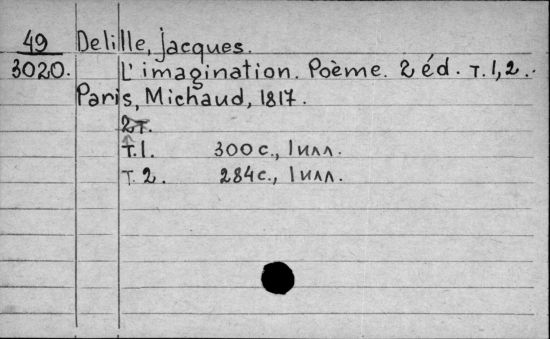 49 Delille, Jacques.
3020. L'imagination. Poème. 2 éd. т. 1, 2.
Paris, Michaud, 1817.
2т.
т. 1. 300 с., 1 илл.
т. 2. 284 с., 1 илл.